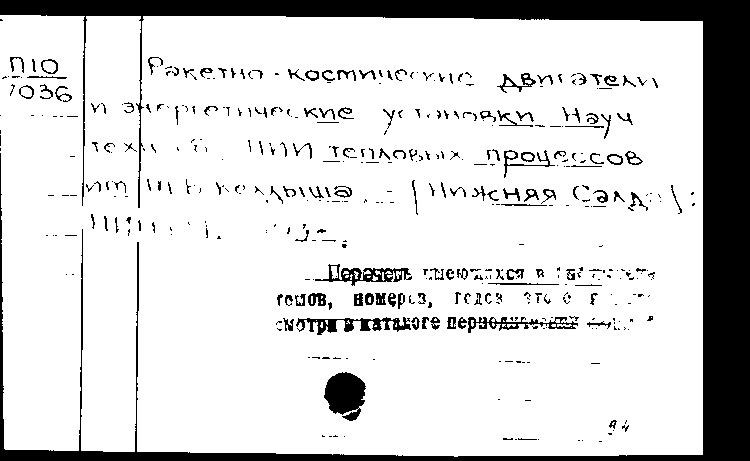 П10
1036
Ракетно-космические двигатели
и энергетические установки Науч
техн сб. НИИ тепловых процессов
им М В Келдыша. - [Нижняя Салда]:
Перечень имеющихся в
томов, номеров, годов этого
смотри в каталоге периодических
94